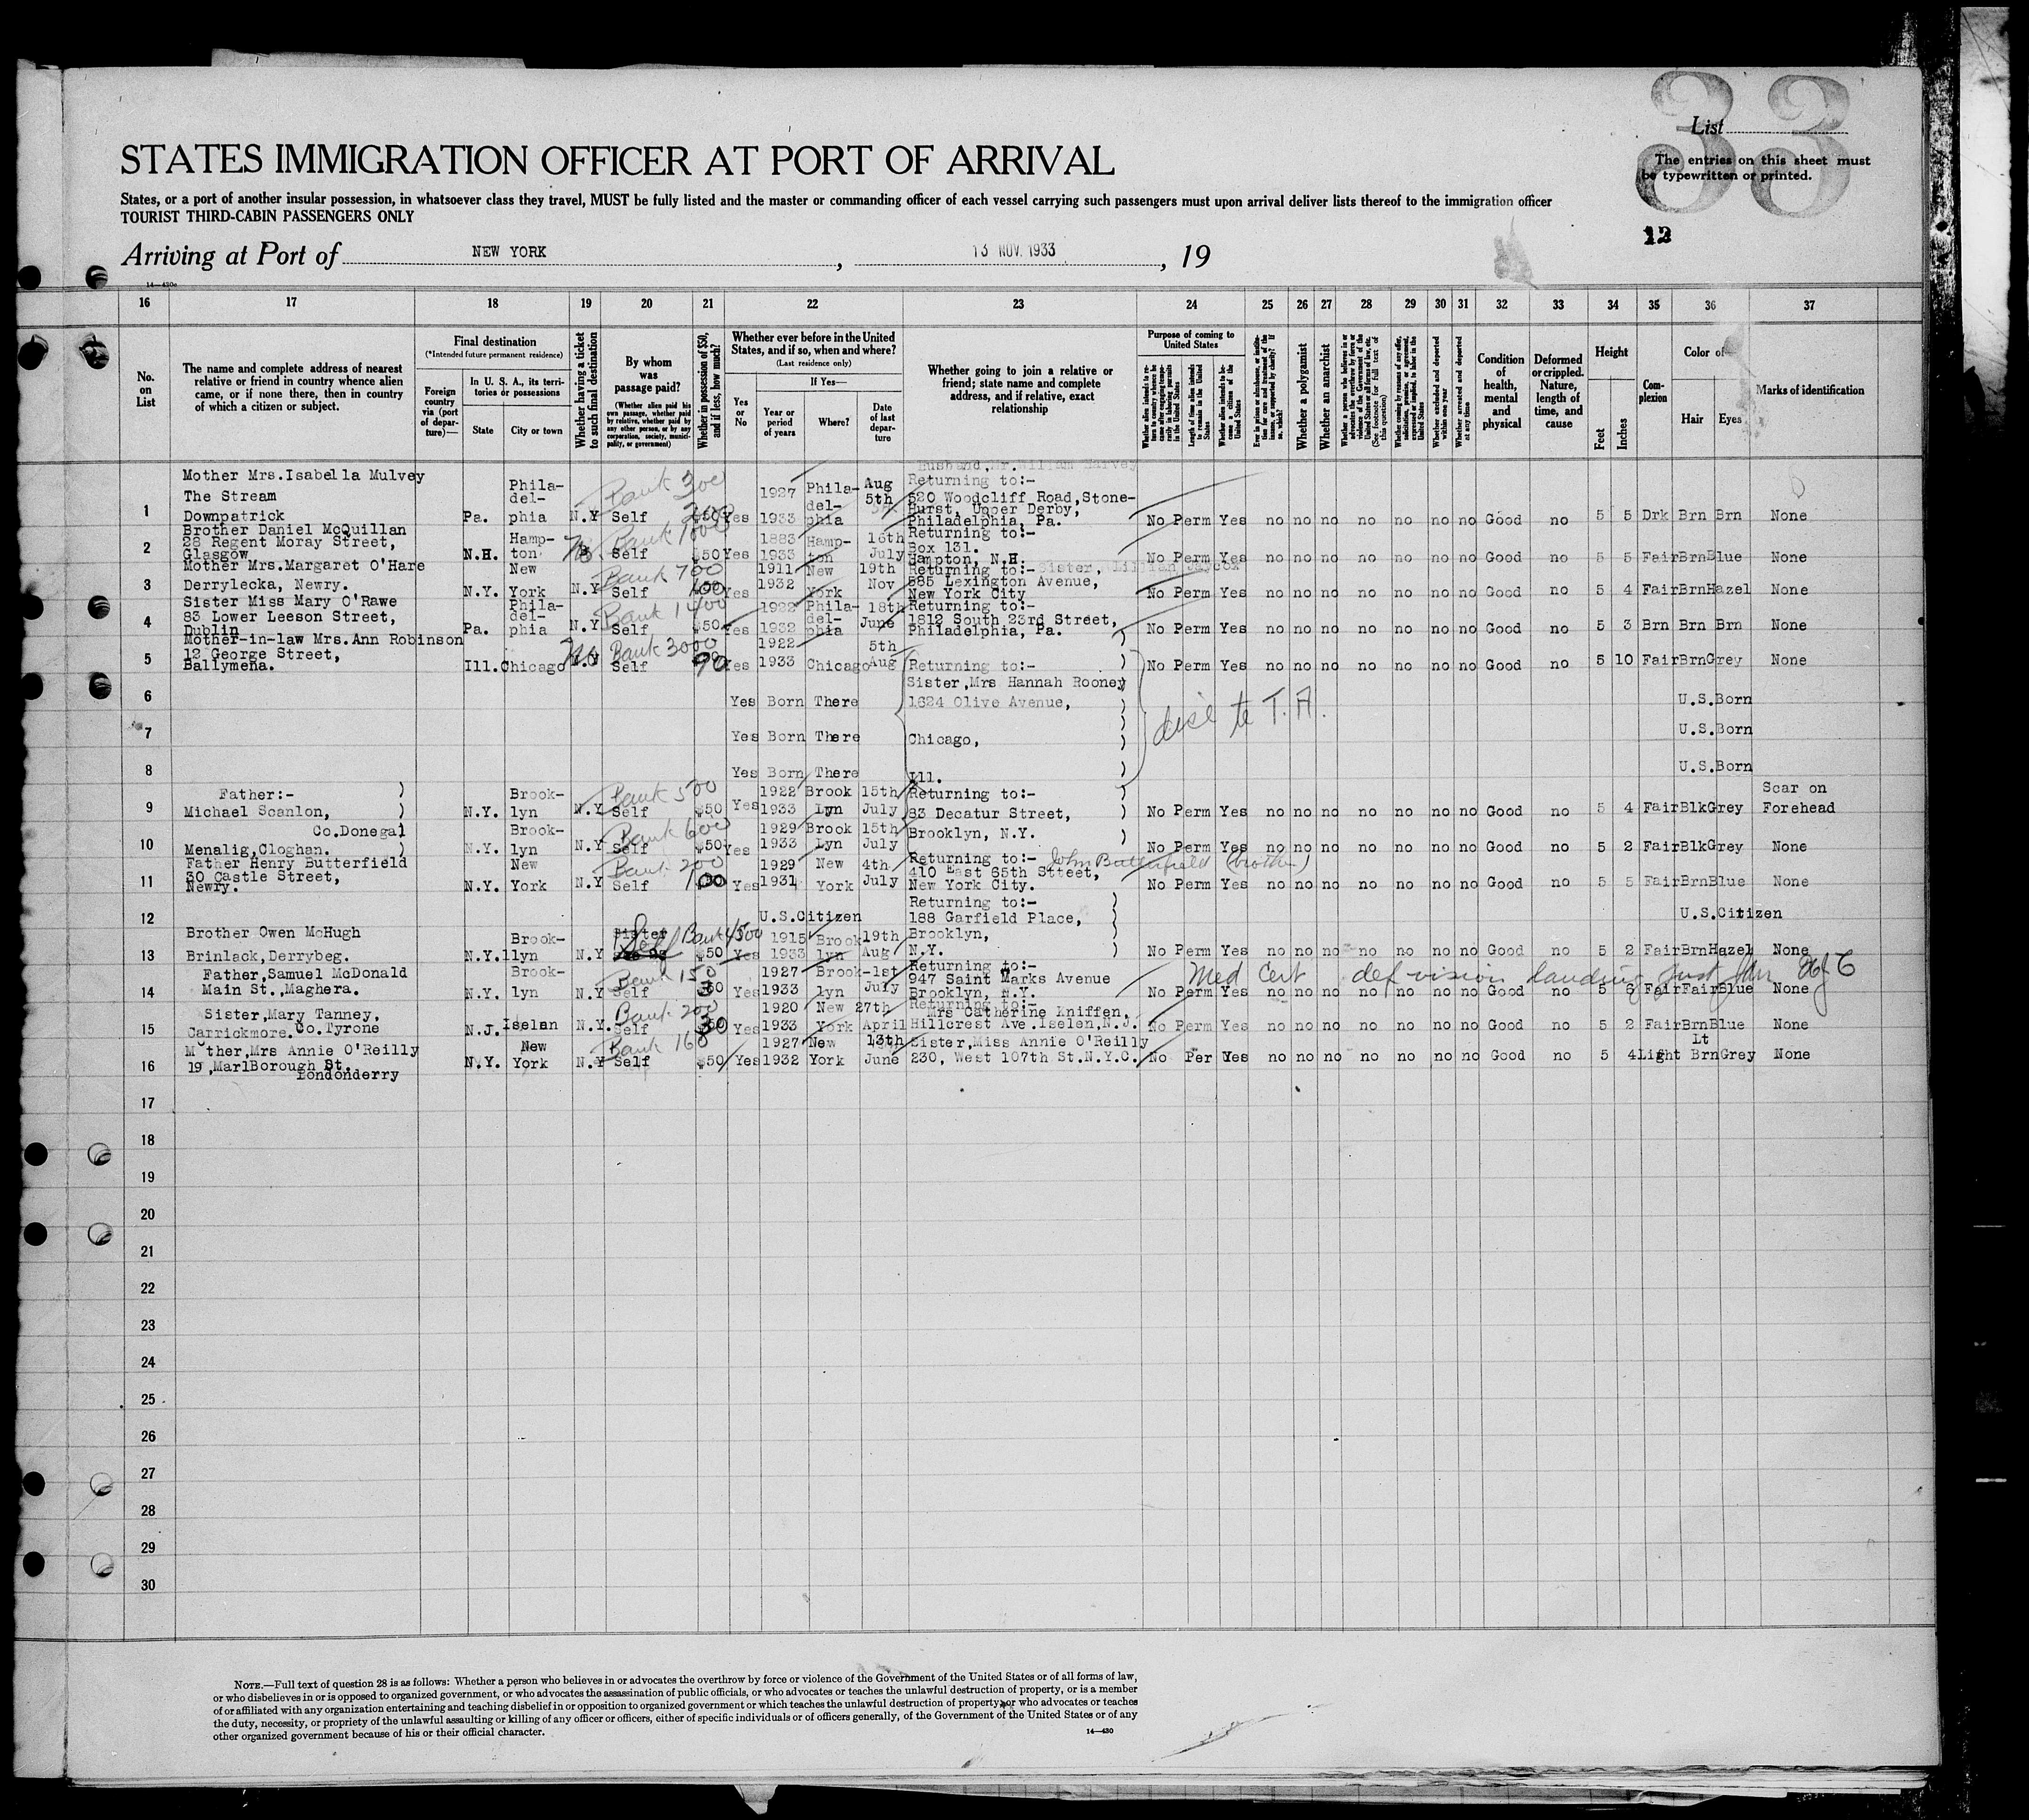 33
List
The entries on this sheet must
be typewritten or printed.
STATES IMMIGRATION OFFICER AT PORT OF ARRIVAL
States, or a port of another insular possession, in whatsoever class they travel, MUST be fully listed and the master or commanding officer of each vessel carrying such passengers must upon arrival deliver lists thereof to the immigration officer
TOURIST THIRD-CABIN PASSENGERS ONLY
12
Arriving at Port of NEW YORK, 13 NOV. 1933, 19
14—430c
16 17 18 19 20 21 22 23 24 25 26 27 28 29 30 31 32 33 34 35 36 37
No. on List
The name and complete address of nearest relative or friend in country whence alien came, or if none there, then in country of which a citizen or subject.
Final destination
(*Intended future permanent residence)
Foreign country via (port of departure)—
In U. S. A., its territories or possessions
State City or town
Whether having a ticket to such final destination
By whom was passage paid?
(Whether alien paid his own passage, whether paid by relative, whether paid by any other person, or by any corporation, society, municipality, or government)
Whether in possession of $50, and if less, how much?
Whether ever before in the United States, and if so, when and where?
(Last residence only)
Yes or No
If Yes—
Year or period of years
Where?
Date of last departure
Whether going to join a relative or friend; state name and complete address, and if relative, exact relationship
Purpose of coming to United States
Whether a polygamist
Whether an anarchist
Whether excluded and deported within one year
Whether arrested and deported at any time
Condition of health, mental and physical
Deformed or crippled. Nature, length of time, and cause
Height
Feet Inches
Complexion
Color of—
Hair Eyes
Marks of identification
Husband, Mr. William Harvey
1 Mother Mrs.Isabella Mulvey The Stream Downpatrick Pa. Phila-del-phia N.Y Self Bank 300 200 $50 Yes 1927 1933 Phila-del-phia Aug 5th Returning to:- 520 Woodcliff Road,Stone-Hurst, Upper Derby, Philadelphia, Pa. No Perm Yes no no no no no no no Good no 5 5 Drk Brn Brn None
2 Brother Daniel McQuillan 28 Regent Moray Street, Glasgow N.H. Hamp-ton Self Bank 1000 $50 Yes 1883 1933 Hamp-ton 16th July Returning to:- Box 131. Hampton, N.H. No Perm Yes no no no no no no no Good no 5 5 Fair Brn Blue None
3 Mother Mrs.Margaret O'Hare Derrylecka, Newry. N.Y. New York N.Y Self Bank 700 100 Yes 1911 1932 New York 19th Nov Returning to:- Sister, 585 Lexington Avenue, New York City No Perm Yes no no no no no no no Good no 5 4 Fair Brn Hazel None
4 Sister Miss Mary O'Rawe 83 Lower Leeson Street, Dublin Pa. Phila-del-phia N.Y Self Bank 1400 $50 Yes 1922 1932 Phila-del-phia 18th June Returning to:- 1812 South 23rd Street, Philadelphia, Pa. No Perm Yes no no no no no no no Good no 5 3 Brn Brn Brn None
5 Mother-in-law Mrs.Ann Robinson 12 George Street, Ballymena. Ill. Chicago N.Y Self Bank 3000 90 Yes 1922 1933 Chicago 5th Aug Returning to:- No Perm Yes no no no no no no no Good no 5 10 Fair Brn Grey None
Sister,Mrs Hannah Rooney
6 Yes Born There 1624 Olive Avenue, U.S.Born
7 Yes Born There Chicago, U.S.Born
8 Yes Born There Ill. U.S.Born
9 Father:- Michael Scanlon, N.Y. Brook-lyn N.Y Self Bank 500 $50 Yes 1922 1933 Brook Lyn 15th July Returning to:- 83 Decatur Street, No Perm Yes no no no no no no no Good no 5 4 Fair Blk Grey Scar on Forehead
10 Co.Donegal Menalig,Cloghan. N.Y. Brook-lyn N.Y Self Bank 600 $50 Yes 1929 1933 Brook Lyn 15th July Brooklyn, N.Y. No Perm Yes no no no no no no no Good no 5 2 Fair Blk Grey None
11 Father Henry Butterfield 30 Castle Street, Newry. N.Y. New York N.Y Self Bank 200 100 Yes 1929 1931 New York 4th July Returning to:- John Butterfield (brother) 410 East 65th Stteet, New York City. No Perm Yes no no no no no no no Good no 5 5 Fair Brn Blue None
12 U.S.Citizen Returning to:- 188 Garfield Place, U.S.Citizen
13 Brother Owen McHugh Brinlack,Derrybeg. N.Y. Brook-llyn N.Y Sister Self Bank 4500 $50 Yes 1915 1933 Brook lyn 19th Aug Brooklyn, N.Y. No Perm Yes no no no no no no no Good no 5 2 Fair Brn Hazel None
14 Father,Samuel McDonald Main St.,Maghera. N.Y. Brook-lyn N.Y Self Bank 150 Yes 1927 1933 Brook-lyn 1st July Returning to:- 947 Saint Marks Avenue Brooklyn, N.Y. No Perm Yes no no no no no no no Good no 5 6 Fair Fair Blue None
Med Cert def vision landing
15 Sister,Mary Tanney, Carrickmore. Co.Tyrone N.J. Iselan N.Y. Self Bank 200 30 Yes 1920 1933 New York 27th April Returning to:- Mrs Catherine Kniffen, Hillcrest Ave.Iselen,N.J. No Perm Yes no no no no no no no Good no 5 2 Fair Brn Blue None
16 Mother,Mrs Annie O'Reilly 19,MarlBorough St. Londonderry N.Y. New York N.Y Self Bank 160 $50 Yes 1927 1932 New York 13th June Sister,Miss Annie O'Reilly 230, West 107th St.N.Y.C. No Per Yes no no no no no no no Good no 5 4 Light Lt Brn Grey None
17
18
19
20
21
22
23
24
25
26
27
28
29
30
NOTE.—Full text of question 28 is as follows: Whether a person who believes in or advocates the overthrow by force or violence of the Government of the United States or of all forms of law,
or who disbelieves in or is opposed to organized government, or who advocates the assassination of public officials, or who advocates or teaches the unlawful destruction of property, or is a member
of or affiliated with any organization entertaining and teaching disbelief in or opposition to organized government or which teaches the unlawful destruction of property, or who advocates or teaches
the duty, necessity, or propriety of the unlawful assaulting or killing of any officer or officers, either of specific individuals or of officers generally, of the Government of the United States or of any
other organized government because of his or their official character.
14—430